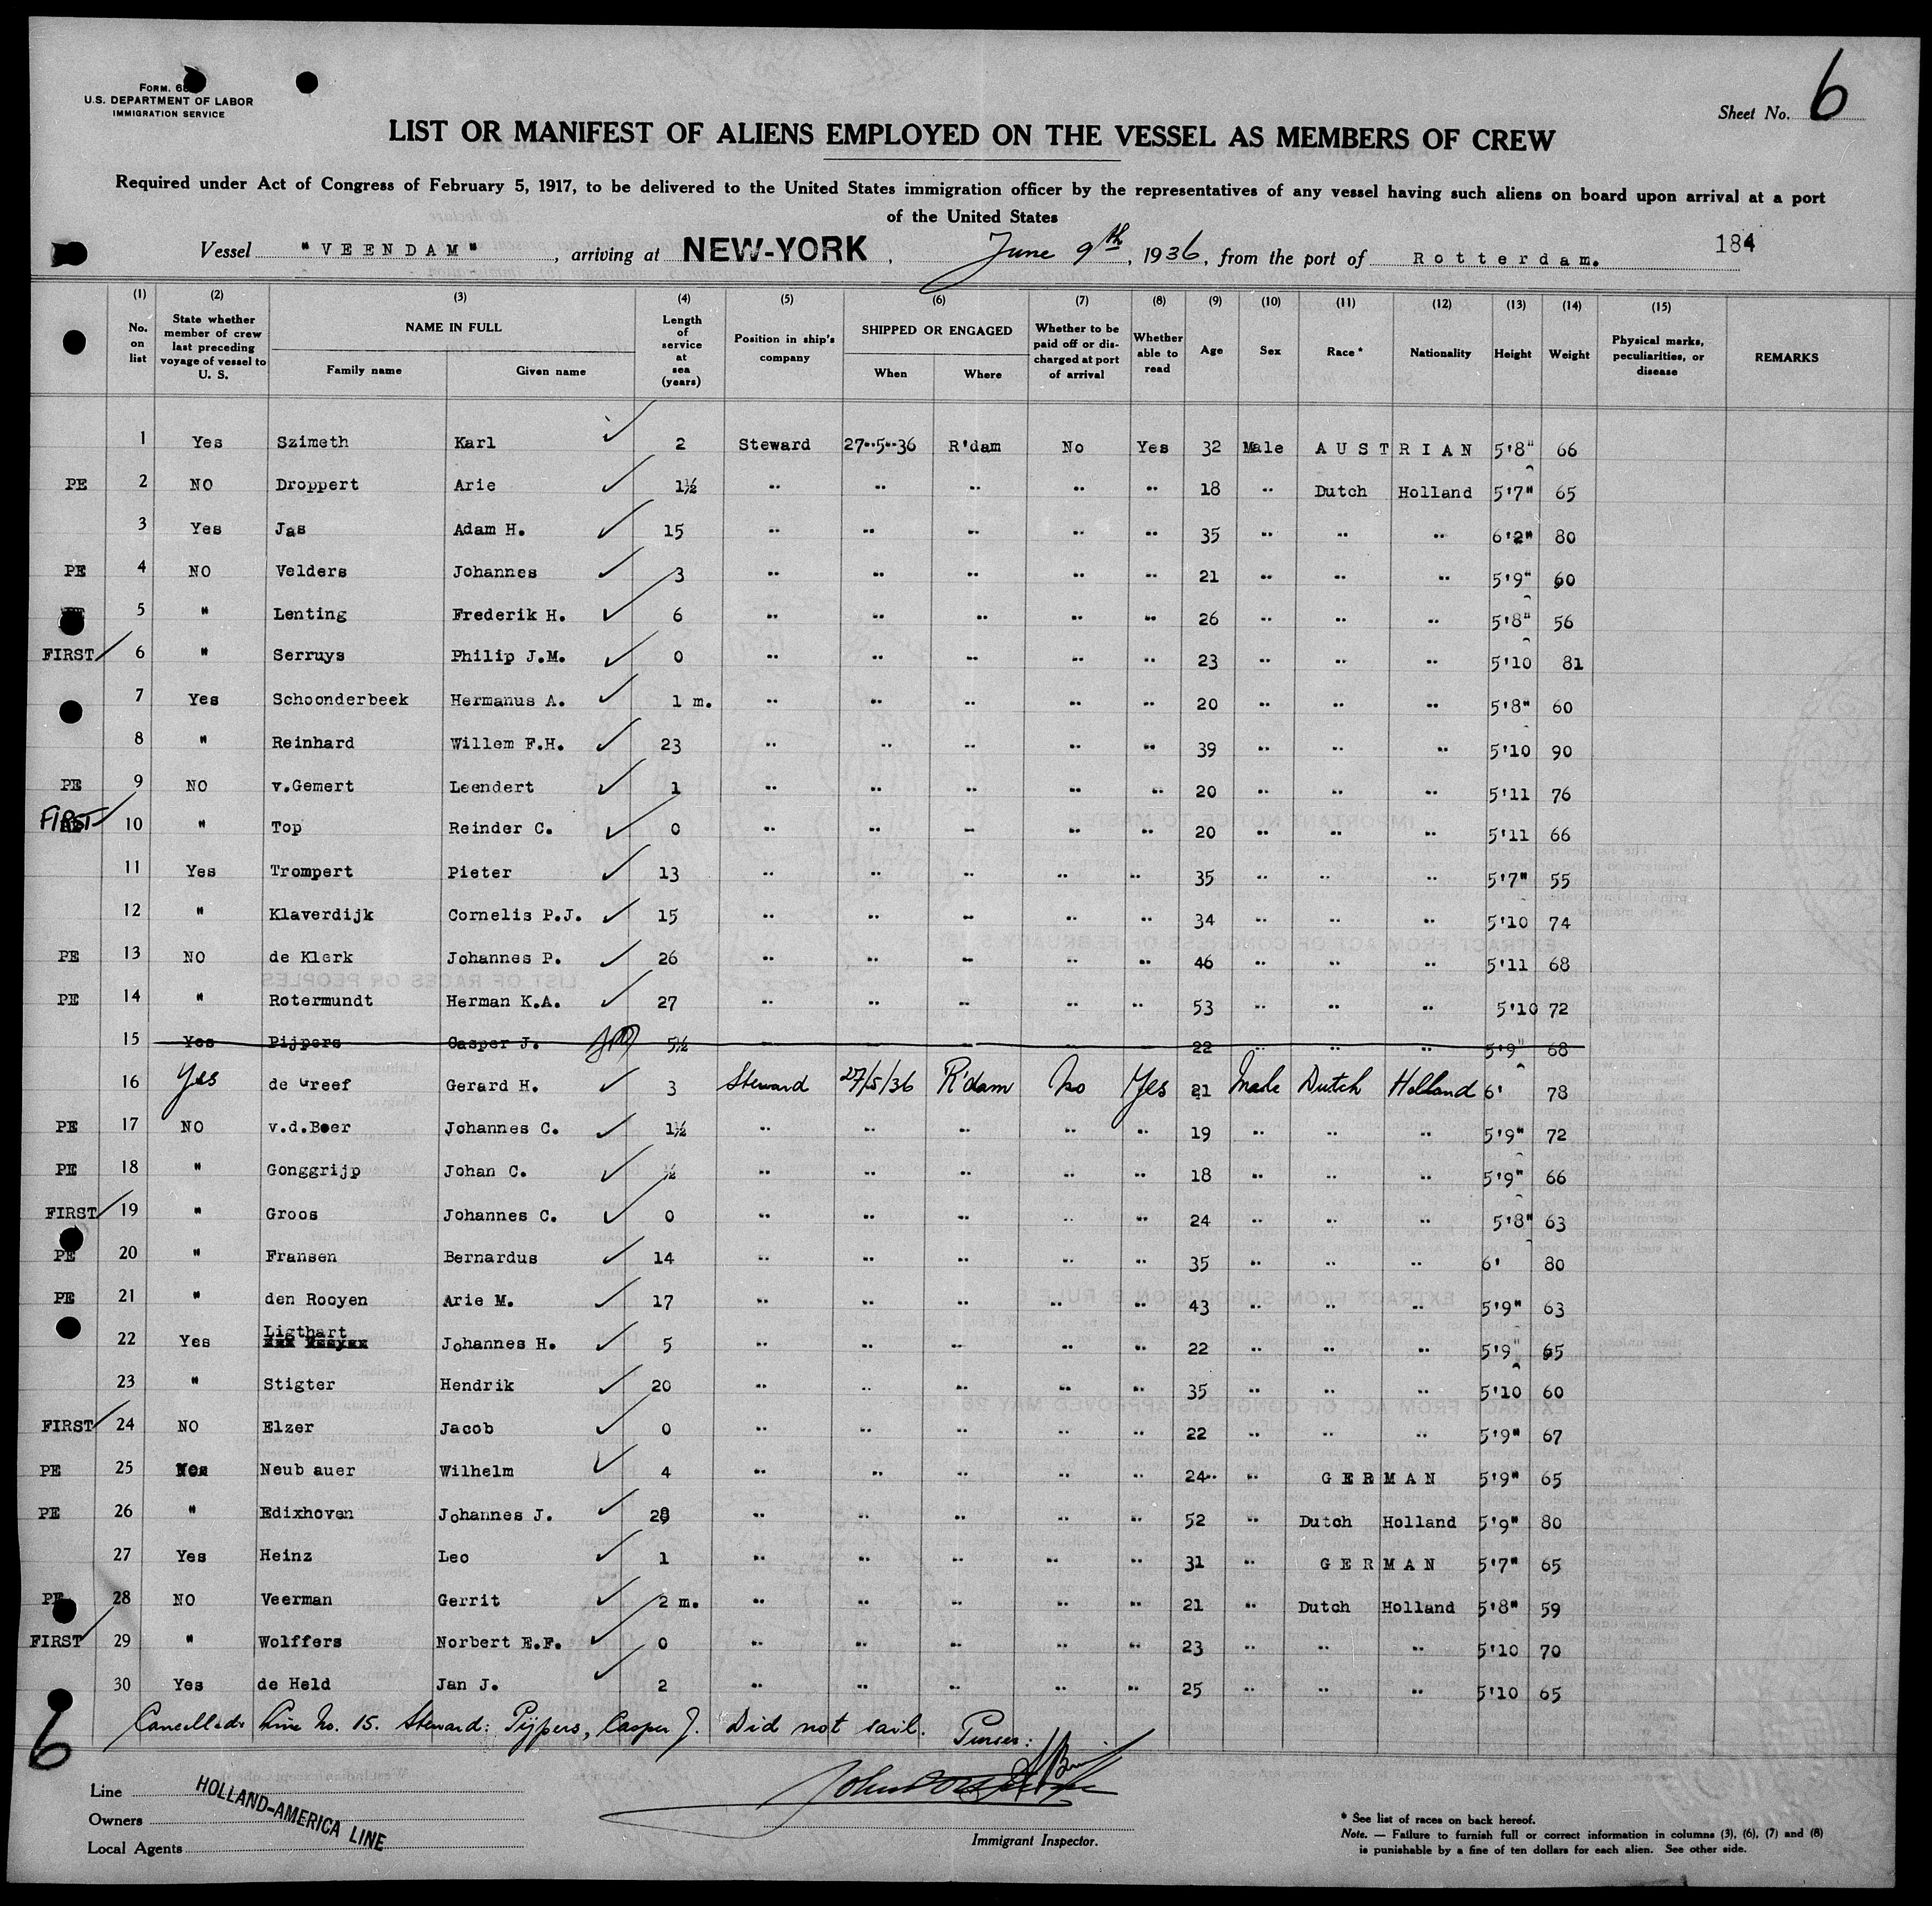 Form. 68
U.S. DEPARTMENT OF LABOR
IMMIGRATION SERVICE
Sheet No. 6
LIST OR MANIFEST OF ALIENS EMPLOYED ON THE VESSEL AS MEMBERS OF CREW
Required under Act of Congress of February 5, 1917, to be delivered to the United States immigration officer by the representatives of any vessel having such aliens on board upon arrival at a port
of the United States
Vessel "VEENDAM", arriving at NEW-YORK, June 9th, 1936, from the port of Rotterdam. 184
(1) (2) (3) (4) (5) (6) (7) (8) (9) (10) (11) (12) (13) (14) (15)
No. on list State whether member of crew last preceding voyage of vessel to U. S. NAME IN FULL Family name Given name Length of service at sea (years) Position in ship's company SHIPPED OR ENGAGED When Where Whether to be paid off or discharged at port of arrival Whether able to read Age Sex Race* Nationality Height Weight Physical marks, peculiarities, or disease REMARKS
1 Yes Szimeth Karl ✓ 2 Steward 27-5-36 R'dam No Yes 32 Male AUSTRIAN 5'8" 66
PE 2 NO Droppert Arie ✓ 1½ " " " " " 18 " Dutch Holland 5'7" 65
3 Yes Jas Adam H. ✓ 15 " " " " " 35 " " " 6'2" 80
PE 4 NO Velders Johannes ✓ 3 " " " " " 21 " " " 5'9" 60
5 " Lenting Frederik H. ✓ 6 " " " " " 26 " " " 5'8" 56
FIRST 6 " Serruys Philip J.M. ✓ 0 " " " " " 23 " " " 5'10 81
7 Yes Schoonderbeek Hermanus A. ✓ 1 m. " " " " " 20 " " " 5'8" 60
8 " Reinhard Willem F.H. ✓ 23 " " " " " 39 " " " 5'10 90
PE 9 NO v.Gemert Leendert ✓ 1 " " " " " 20 " " " 5'11 76
FIRST 10 " Top Reinder C. ✓ 0 " " " " " 20 " " " 5'11 66
11 Yes Trompert Pieter ✓ 13 " " " " " 35 " " " 5'7" 55
12 " Klaverdijk Cornelis P.J. ✓ 15 " " " " " 34 " " " 5'10 74
PE 13 NO de Klerk Johannes P. ✓ 26 " " " " " 46 " " " 5'11 68
PE 14 " Rotermundt Herman K.A. ✓ 27 " " " " " 53 " " " 5'10 72
15 Yes Pijpers Casper J. 5½ " " " " " 22 " " " 5'9" 68
16 Yes de Greef Gerard H. ✓ 3 Steward 27/5/36 R'dam No Yes 21 Male Dutch Holland 6' 78
PE 17 NO v.d.Boer Johannes C. ✓ 1½ " " " " " 19 " " " 5'9" 72
PE 18 " Gonggrijp Johan C. ✓ ½ " " " " " 18 " " " 5'9" 66
FIRST 19 " Groos Johannes C. ✓ 0 " " " " " 24 " " " 5'8" 63
PE 20 " Fransen Bernardus ✓ 14 " " " " " 35 " " " 6' 80
PE 21 " den Rooyen Arie M. ✓ 17 " " " " " 43 " " " 5'9" 63
22 Yes Ligthart Johannes H. ✓ 5 " " " " " 22 " " " 5'9" 65
23 " Stigter Hendrik ✓ 20 " " " " " 35 " " " 5'10 60
FIRST 24 NO Elzer Jacob ✓ 0 " " " " " 22 " " " 5'9" 67
PE 25 Neubauer Wilhelm ✓ 4 " " " " " 24 " GERMAN 5'9" 65
PE 26 " Edixhoven Johannes J. ✓ " " " " " 52 " Dutch Holland 5'9" 80
27 Yes Heinz Leo ✓ 1 " " " " " 31 " GERMAN 5'7" 65
PE 28 NO Veerman Gerrit ✓ 2 m. " " " " " 21 " Dutch Holland 5'8" 59
FIRST 29 " Wolffers Norbert E.F. ✓ 0 " " " " " 23 " " " 5'10 70
30 Yes de Held Jan J. ✓ 2 " " " " " 25 " " " 5'10 65
Cancelled: Line No. 15. Steward: Pijpers, Casper J. Did not sail. Purser:
6
Line
Owners HOLLAND-AMERICA LINE
Local Agents
Immigrant Inspector.
* See list of races on back hereof.
Note. — Failure to furnish full or correct information in columns (3), (6), (7) and (8)
is punishable by a fine of ten dollars for each alien. See other side.